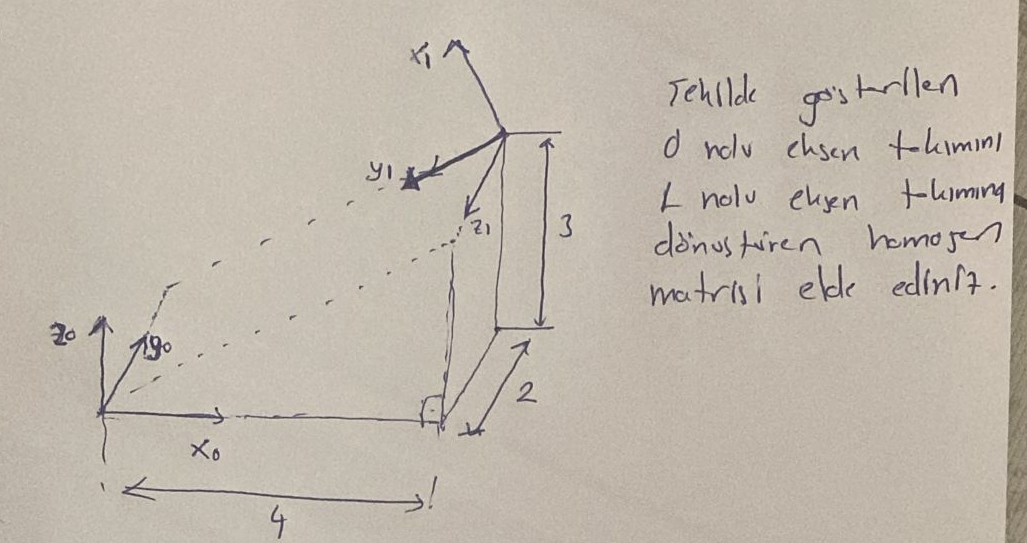 x₁
y₁
z₁
3
z₀
y₀
2
x₀
4
Şekilde gösterilen
0 nolu eksen takımını
1 nolu eksen takımına
dönüştüren homojen
matrisi elde ediniz.